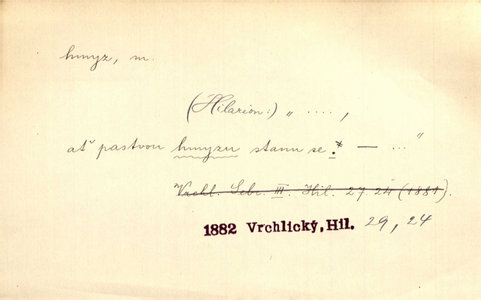 hmyz, m.
(Hilarion:) „ .....,
ať pastvou hmyzu stanu se.* — ... "
Vrchl. Sebr. III. Hil. 27. 24 (1881).
1882 Vrchlický, Hil. 29, 24